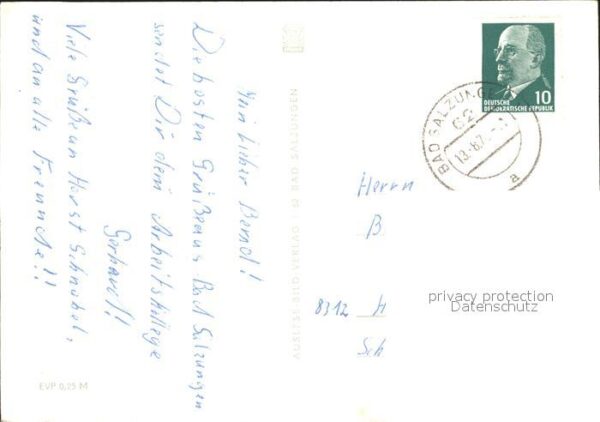 Mein lieber Bernd!
Die besten Grüße aus Bad Salzungen
sendet Dir dein Arbeitskollege
Gerhard!!
Viele Grüße an Horst Schnabel,
und an alle Freunde!!
EVP 0,25 M
AUSLESE-BILD-VERLAG 
BAD SALZUNGEN
DEUTSCHE
DEMOKRATISCHE REPUBLIK
10
BAD SALZUNGEN
62
13.-8.7
a
Herrn
B
8312 H
Sch
privacy protection
Datenschutz